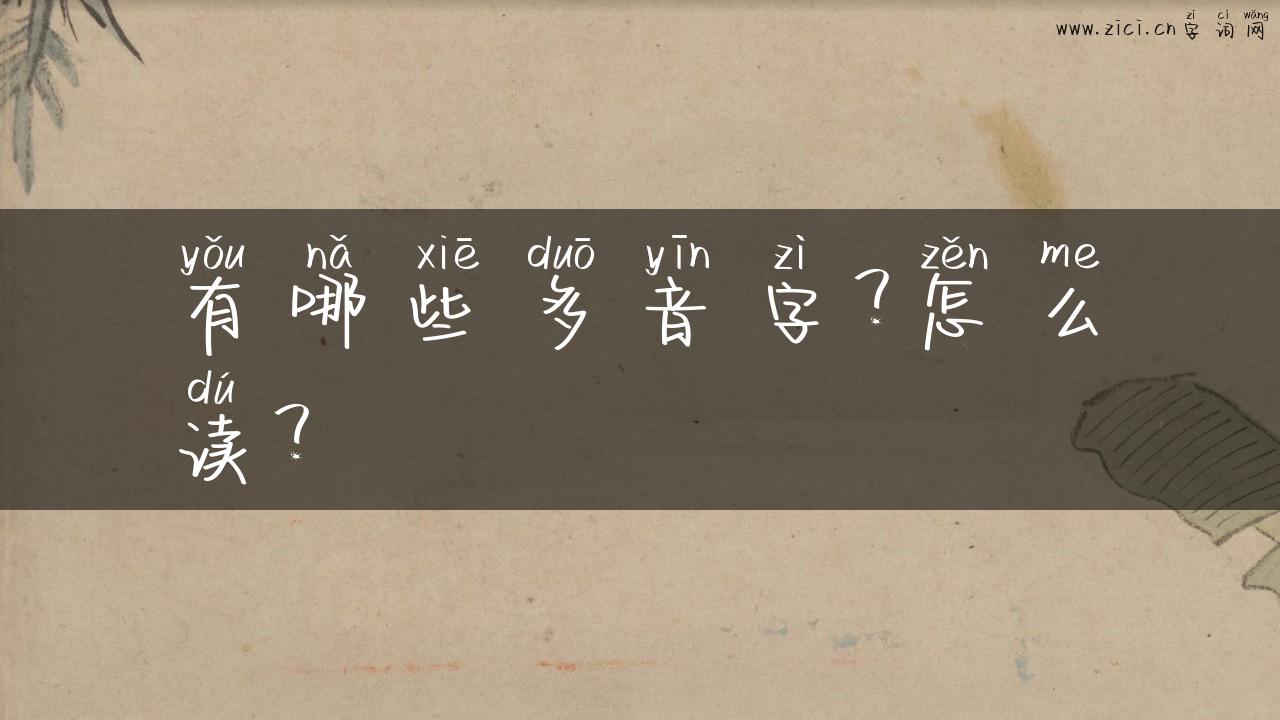 zì cí wǎng
www.zici.cn 字 词 网
yǒu nǎ xiē duō yīn zì zěn me
有 哪 些 多 音 字 ? 怎 么
dú
读 ?